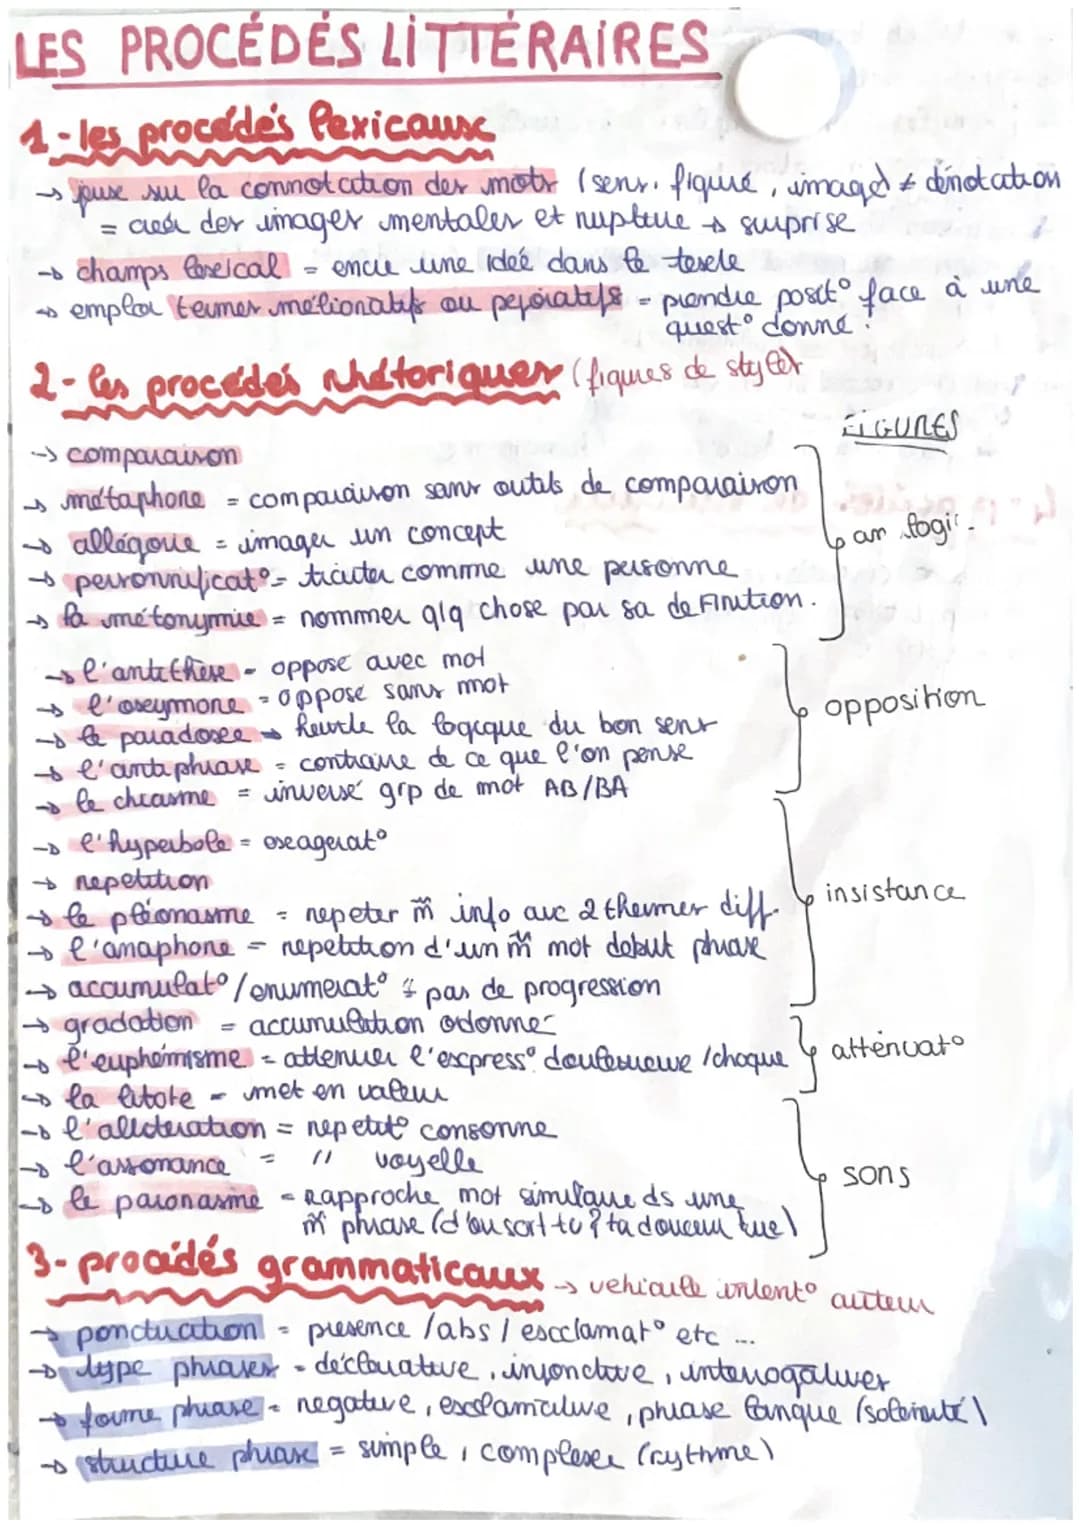 LES PROCÉDÉS LITTÉRAIRES
1 - les procédés lexicaux
→ joue su la connotation des mots (sens. figuré, imagé ≠ dénotation
= créér des images mentales et rupture → surprise
→ champs lexical = encre une idée dans le texte
→ emploi termes mélioratifs ou pejoratifs = prendre posit° face à une
quest° donné.
2 - les procédés rhétoriques (figures de style)
FIGURES
→ comparaison
→ métaphore = comparaison sans outils de comparaison
→ allégorie = imager un concept
→ personnificat° = traiter comme une personne
→ la métonymie = nommer q/q chose par sa definition.
analogi
→ l'antithèse - oppose avec mot
→ l'oxymore = oppose sans mot
→ le paradoxe → heurte la logique du bon sens
→ l'antiphrase = contraire de ce que l'on pense
→ le chiasme = inversé grp de mot AB/BA
opposition
→ l'hyperbole = exagerat°
→ repetition
→ le pléonasme = repeter m̂ info avc 2 thermes diff.
→ l'anaphore = repetition d'un m̂ mot debut phrase
→ accumulat°/enumerat° ≠ pas de progression
insistance
→ gradation = accumulation odonné
→ l'euphémisme = attenuer l'express° douloureuse /choque
→ la litote - met en valeur
atténuat°
→ l'alliteration = repetit° consonne
→ l'assonance = " voyelle
→ le paronasme = Rapproche mot similaire ds une
m̂ phrase (d'ou sort-tu? ta douceur tue)
sons
3 - procédés grammaticaux → vehicule intent° auteur
→ ponctuation = presence /abs / exclamat° etc ...
→ type phrases = déclarative, injonctive, interrogatives
→ forme phrase = negative, exclamative, phrase longue (solenité)
→ structure phrase = simple, complexe (rythme)